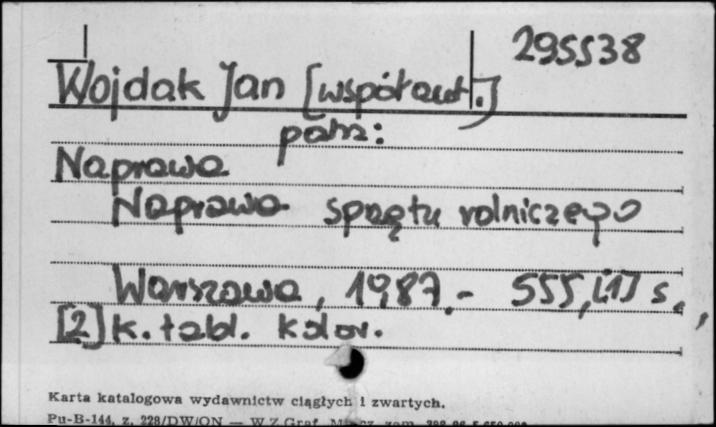 295538
Wojdak Jan [współaut.]
patrz:
Naprawa
Naprawa sprzętu rolniczego
Warszawa, 1987.- 555,[1] s.,
[2] k. tabl. kolor.
Karta katalogowa wydawnictw ciągłych i zwartych.
Pu-B-144, z. 228/DW/ON — W.Z.Graf. zam.